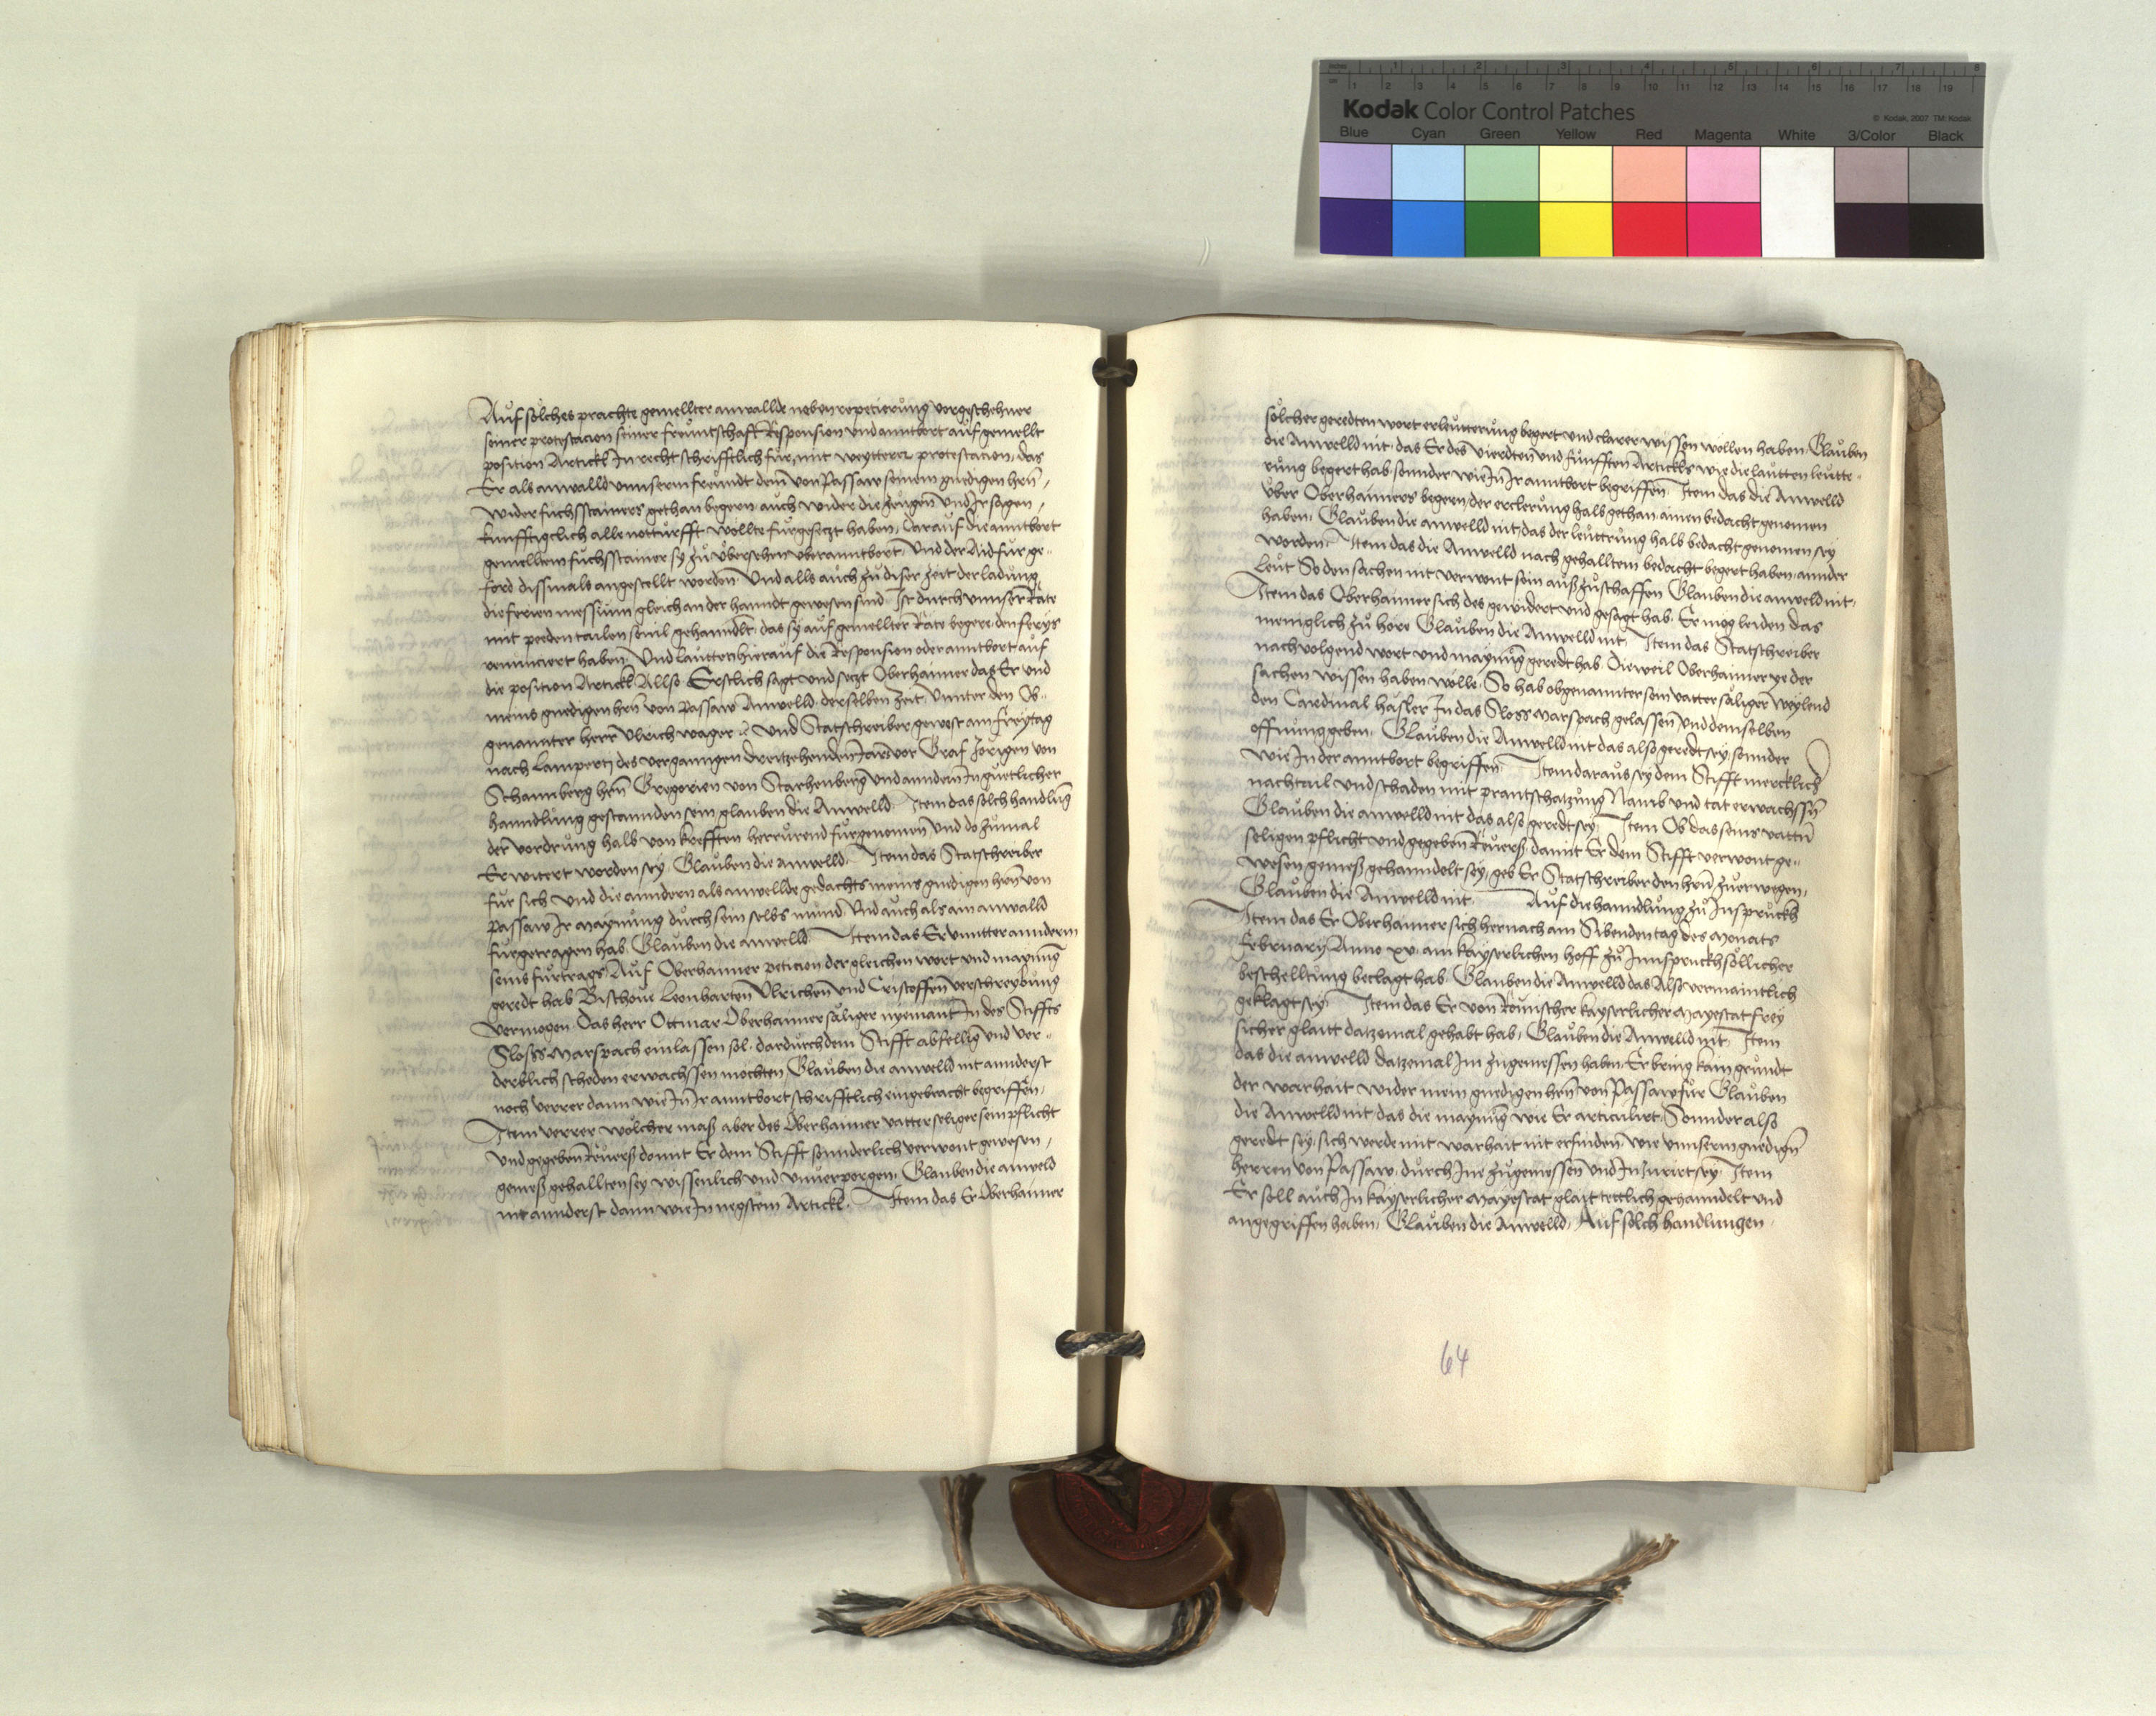 Kodak Color Control Patches
© Kodak, 2007 TM: Kodak
Blue Cyan Green Yellow Red Magenta White 3/Color Black
Auf sölches prachte gemellter anwallde neben repetierung vorgeschehner
seiner protestacion seiner freuntschafft Responsion und anntbort auf gemellt
position Artickl In recht schrifftlich für, mit weytterer protestacion, das
Er als anwalld unnserm freundt dem von Passaw seinem gnedigen hern,
wider fuchsstainers gethan begern, auch wider die zeugen und Ir sagen,
kunfftigclich alle notturfft wollte furgesetzt haben, Darauf die anntbort
gemelltem fuchsstainer sy zu übersehen uberanntbort, Und der Aid fur ge-
ferd dissmals angestellt worden. Und alls auch zu diser zeit der ladung
die ferien messium gleich an der hanndt gewesen sind, Ist durch unnser Räte
mit peeden tailen sovil gehanndlt, das sy auf gemellter Räte beger, den ferijs
renuncirt haben. Und lautten hierauf die Responsion oder anntbort auf
die position Artickl Allso. Erstlich sagt und setzt Oberhaimer das Er und
meins gnedigen hern von Passaw Anwelld derselben zeit, Unnter den Ob-
genannter herr Ulrich wager und Statschreiber gewest am freytag
nach Lamperti des verganngen dreitzehenden Jars vor Graf Jorigen von
Schaunberg hern Gregorien von Starhenberg und anndern In guetlicher
hanndlung gestannden sein glauben die Anwelld. Item das solch handlung
der vordrung halb von krefften herrurend furgenomen und dozumal
Erwitert worden sey, Glauben die anwelld. Item das Statschreiber
fur sich und die anndern als anwellde gedachts meins gnedigen hern von
passaw Ir maynung durch sein selbs mund, Und auch als ain anwalld
furgetragen hab. Glauben die anwelld. Item das Er unntter annderm
seins furtrags Auf Oberhaimer peticion der gleichen wort und maynung
geredt hab Bischove Leonharten Ulrichen und Cristoffen verschreybung
vermogen, Das herr Ottmar Oberhaimer säliger nyemant In des Stiffts
Sloss Marspach einlassen sol, dardurch dem Stifft abfellig und ver-
derblich scheden erwachssen mochten, Glauben die anwelld nit annderst
noch verrer dann wie In Ir anntbort schrifftlich eingebracht begriffen,
Item verrer wölcher mass aber des Oberhaimer vatter seliger sein pflicht
und gegeben Reuerss domit Er dem Stifft sonnderlich verwont gewesen,
gemess gehallten sey wissenlich und unverporgen, Glauben die anweld
nit annderst dann wie In negstem Artickl. Item das Er Oberhaimer
sölcher geredten wort erleutterung begert und clarer wissen wöllen haben, Glauben
die Anwelld nit, das Er des vierdten und funfften Artickls wie die lautten leutte-
rung begert hab, sonnder wie In Ir anntbort begriffen. Item das die Anwelld
über Oberhaimers begern, der erclerung halb gethan, ainen bedacht genomen
haben, Glauben die anwelld nit, das der leuttrung halb bedacht genomen sey
worden. Item das die Anwelld nach gehalltem bedacht begert haben, annder
Leut So den sachen nit verwont sein auss zuschaffen Glauben die anweld nit,
Item das Oberhaimer sich des gewidert und gesagt hab, Er mög leiden das
meniglich zu höre Glauben die Anwelld nit, Item das Statschreiber
nach volgend wort und maynung geredt hab, Dieweil Oberhaimer ye der
sachen wissen haben wolle, So hab obgenannter sein vatter säliger weylend
den Cardinal häsler In das Sloss Marspach gelassen und demselben
offnung geben, Glauben die Anwelld nit das also geredt sey, sonnder
wie In der anntbort begriffen. Item daraus sey dem Stifft mercklich
nachtail und schaden mit prantschatzung Namb und tat erwachssen
Glauben die anwelld nit das also geredt sey, Item Ob das seins vattern
seligen pflicht und gegeben Reuerss, damit Er dem Stifft verwont ge-
wesen gemess gehanndelt sey, geb Er Statschreiber den hern zuerwegen,
Glauben die Anwelld nit. Auf die hanndlung zu Insprückh
Item das Er Oberhaimer sich hernach am Sibenden tag des Monats
February Anno xv. am kayserlichen hoff zu Innspruckh sollicher
beschelltung beclagt hab, Glauben die Anwelld das Also vermaintlich
geklagt sey, Item das Er von Römischer kayserlicher Mayestat frey
sicher glaitt datzemal gehabt hab, Glauben die Anwelld nit. Item
das die anwelld datzemal Im zugemessen haben, Er bring kain grundt
der warhait wider mein gnedigen hern von Passaw für Glauben
die Anwelld nit das die maynung wie Er articulirt, Sonnder also
geredt sey, sich werde mit warhait nit erfinden wie unnserm gnedigen
herren von Passaw durch Ine zugemessen und Iniurirt sey. Item
Er soll auch In kayserlicher Mayestat glait tettlich gehanndelt und
angegriffen haben, Glauben die Anwelld, Auf solch handlungen.
64